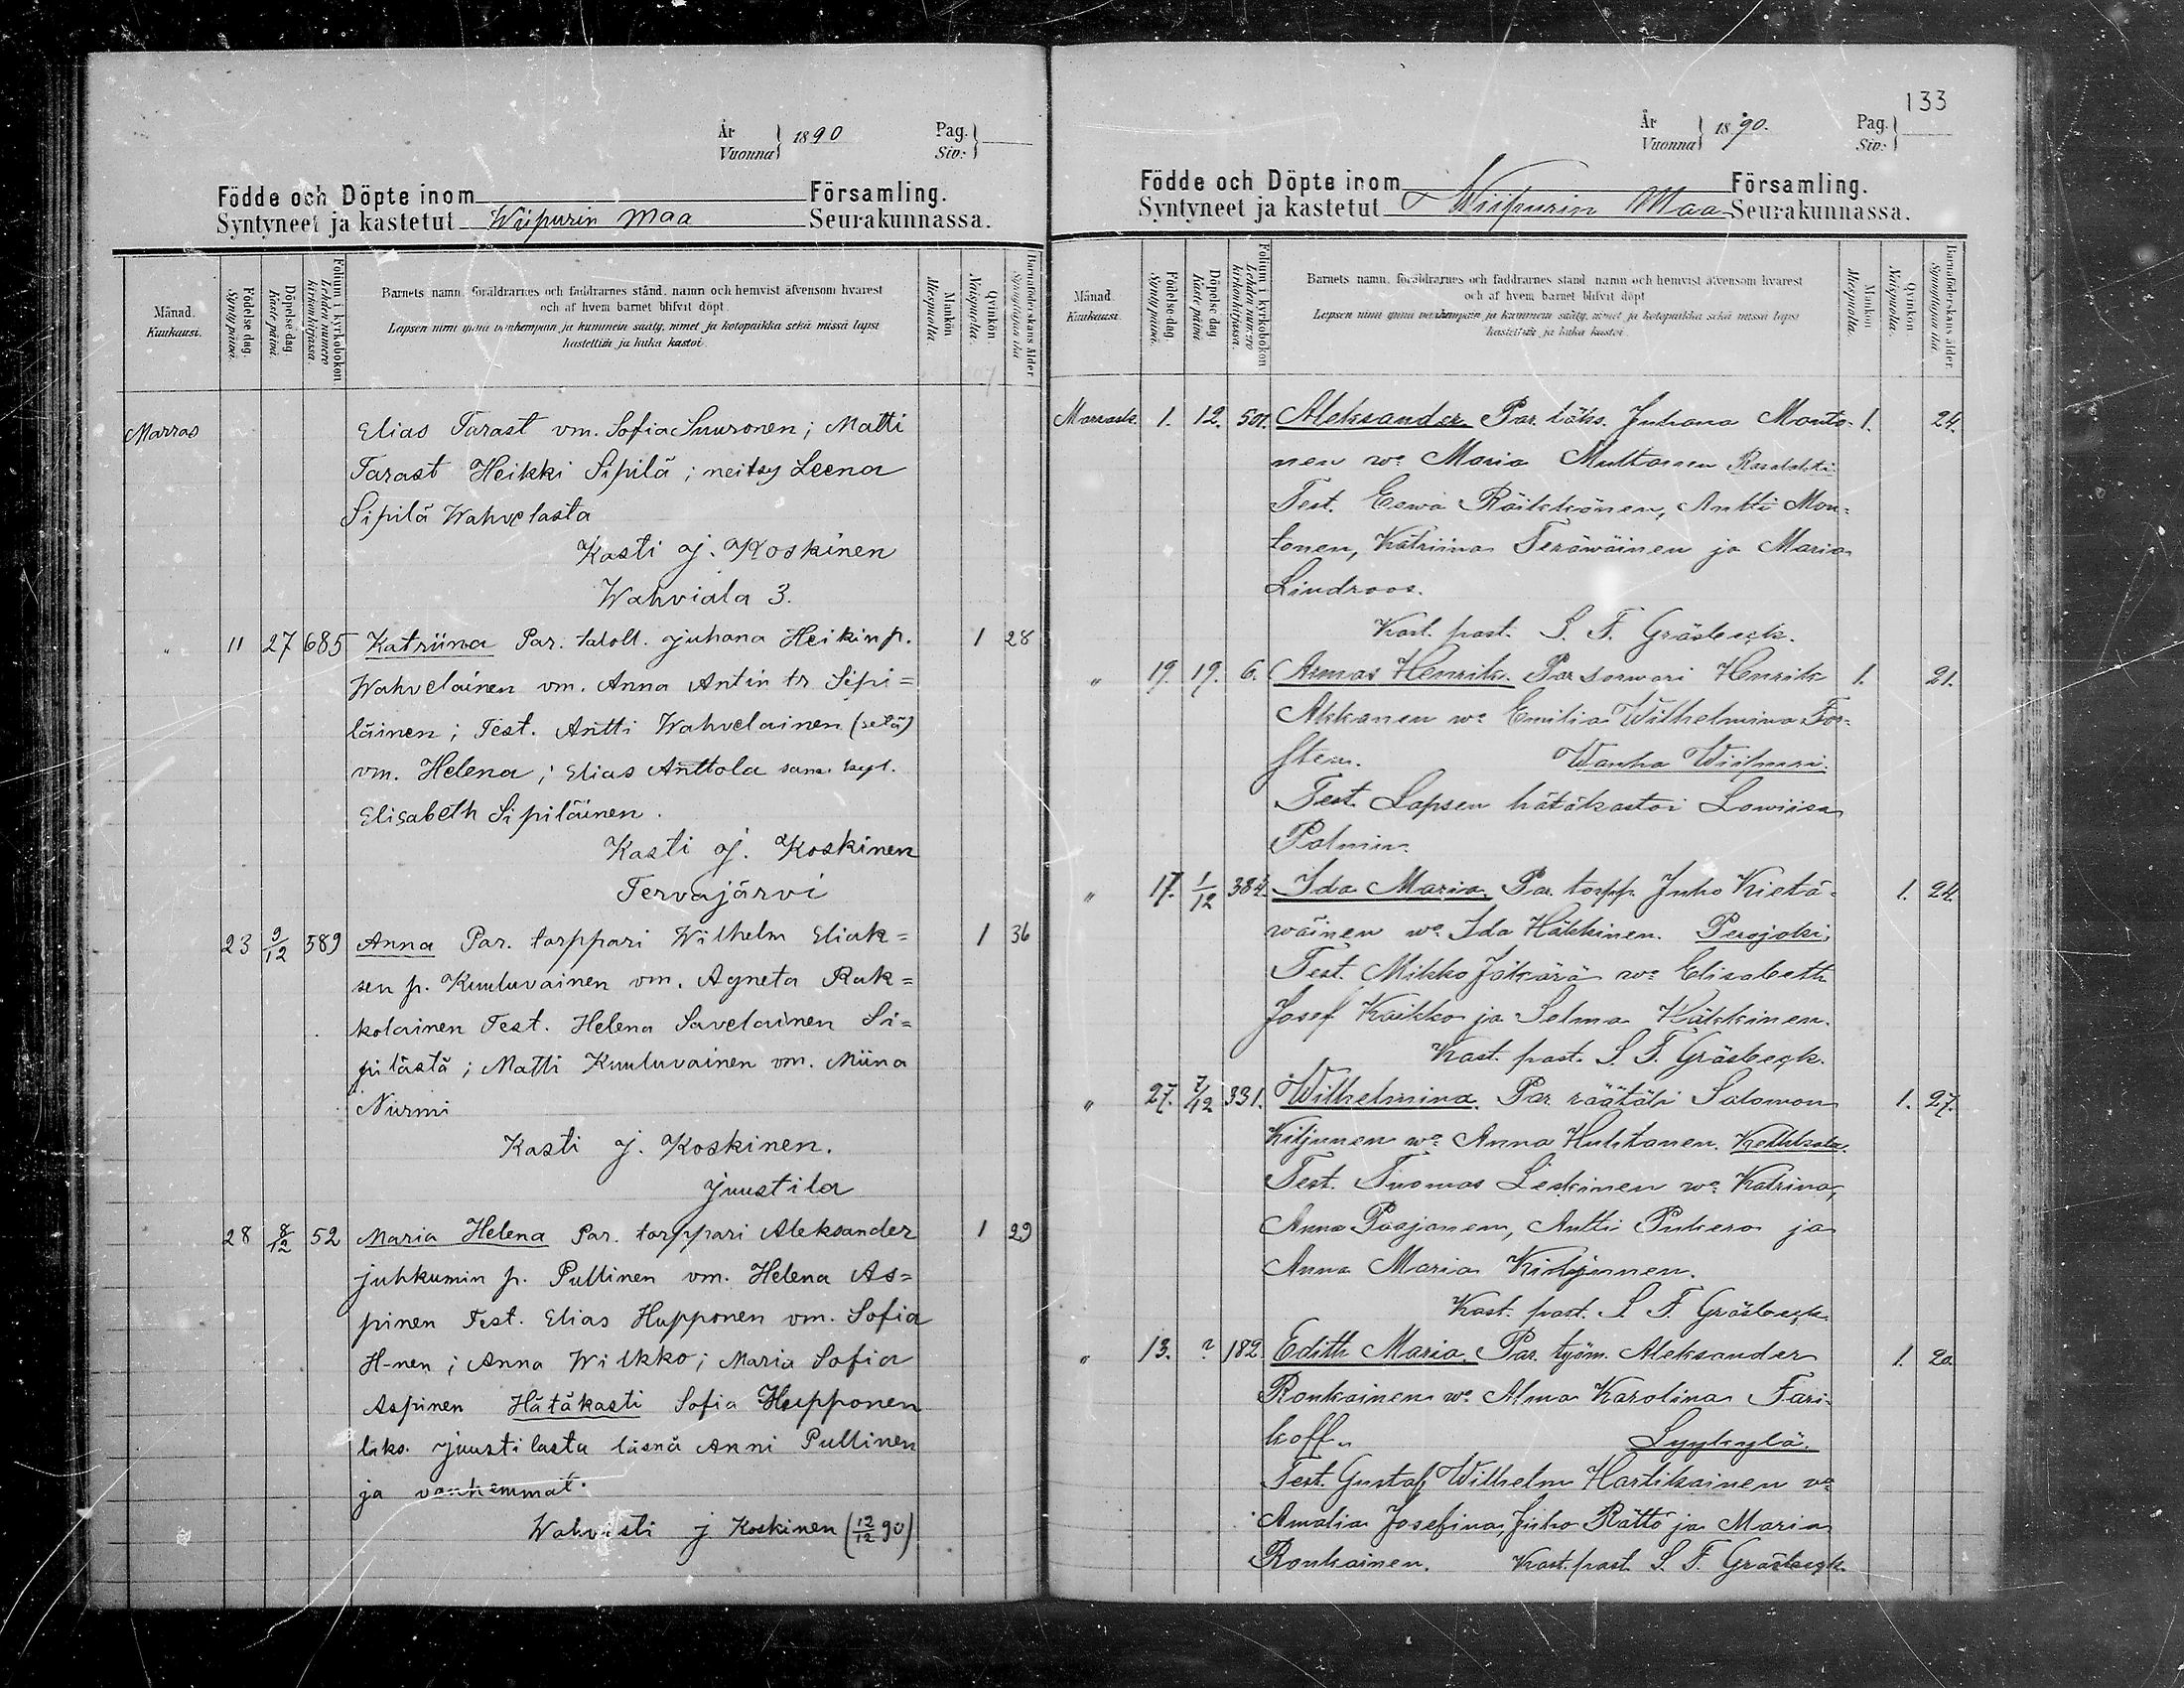 År
Vuonna } 1890 Pag.
Siv: }
Födde och Döpte inom Församling.
Syntyneet ja kastetut Wiipurin Maa Seurakunnassa.
Månad.
Kuukausi.
Födelse dag.
Synty päivä.
Döpelse dag
Kaste päivä.
Folium i kyrkobokon
Lehden numero
kirkonkirjassa.
Barnets namn, föräldrarnes och faddrarnes stånd, namn och hemvist äfvensom hvarest
och af hvem barnet blifvit döpt.
Lapsen nimi ynnä vanhempain ja kummein sääty, nimet ja kotopaikka sekä missä lapsi
kastettiin ja kuka kastoi.
Mankön
Miespuolta
Qvinkön
Naispuolta.
Barnaföderskans ålder
Synnyttäjän ikä
Marras Elias Tarast vm. Sofia Suuronen; Matti
Tarast Heikki Sipilä; neitsy Leena
Sipilä Wahvelasta
Kasti J. Koskinen
Wahviala 3.
" 11 27 685 Katriina Par. taloll. Juhana Heikinp. 1 28
Wahvelainen vm. Anna Antin tr Sipi=
läinen; Test. Antti Wahvelainen (setä)
vm. Helena; Elias Anttola sam. kyl.
Elisabeth Sipiläinen.
Kasti J. Koskinen
Tervajärvi
23 9/12 589 Anna Par. torppari Wilhelm Eliak= 1 36
sen p. Kuuluvainen vm. Agneta Rak=
kolainen Test. Helena Savelainen Si=
pilästä; Matti Kuuluvainen vm. Miina
Nurmi
Kasti J. Koskinen.
Juustila
28 8/12 52 Maria Helena Par. torppari Aleksander 1 29
Juhkumin p. Pullinen vm. Helena As=
pinen Test. Elias Hupponen vm. Sofia
H-nen; Anna Wilkko; Maria Sofia
Aspinen Hätäkasti Sofia Hupponen
läks. Juustilasta läsnä Anni Pullinen
ja vanhemmat.
Wahvisti J Koskinen (12/12 90)
133
År
Vuonna } 1890. Pag.
Siv: }
Födde och Döpte inom Församling.
Syntyneet ja kastetut Wiipurin Maa Seurakunnassa.
Månad.
Kuukausi.
Födelse dag.
Synty päivä.
Döpelse dag
Kaste päivä
Folium i kyrkobokon
Lehden numero
kirkonkirjassa.
Barnets namn, föräldrarnes och faddrarnes stånd namn och hemvist äfvensom hvarest
och af hvem barnet blifvit döpt
Lapsen nimi ynnä vanhempain ja kummein sääty, nimet ja kotopaikka sekä missä lapsi
kastettiin ja kuka kastoi.
Mankön
Miespuolta.
Qvinkön
Naispuolta.
Barnaföderskans ålder
Synnyttäjän ikä
Marrask. 1. 12. 501. Aleksander Par. läks. Juhana Monto- 1. 24.
nen wo Maria Multanen
Test. Eewa Räikkönen, Antti Mon=
tonen, Katriina Teräwäinen ja Maria
Lindroos.
Kast. past. S. F. Gräsbeck.
" 19. 19. 6. Armas Henrik. Par sorwari Henrik 1. 21.
Akkanen wo Emilia Wilhelmina For=
sten. Wanha Wiipuri.
Test. Lapsen hätäkastoi Lowiisa
Palmin.
" 17. 1/12 384. Ida Maria. Par. torpp. Juho Kietä- 1. 24.
wäinen wo Ida Häkkinen. Perojoki.
Test. Mikko Jäkärä wo Elisabeth
Josef Kaikko ja Selma Häkkinen.
Kast. past. S. F. Gräsbeck.
" 27. 7/12 331. Wilhelmina. Par räätäli Salomon 1. 27.
Kiljunen wo Anna Huhtanen.
Test. Tuomas Leskinen wo Katrina,
Anna Paajanen, Antti Pukero ja
Anna Maria Kiljunen.
Kast. past. S. F. Gräsbeck
" 13. ? 182. Edith Maria. Par. työm. Aleksander 1. 20.
Ronkainen wo Alma Karolina Fari-
koff. Lyykylä.
Test. Gustaf Wilhelm Hartikainen vo
Amalia Josefina, Juho Rättö ja Maria
Ronkainen. Kast. past. S. F. Gräsbeck.